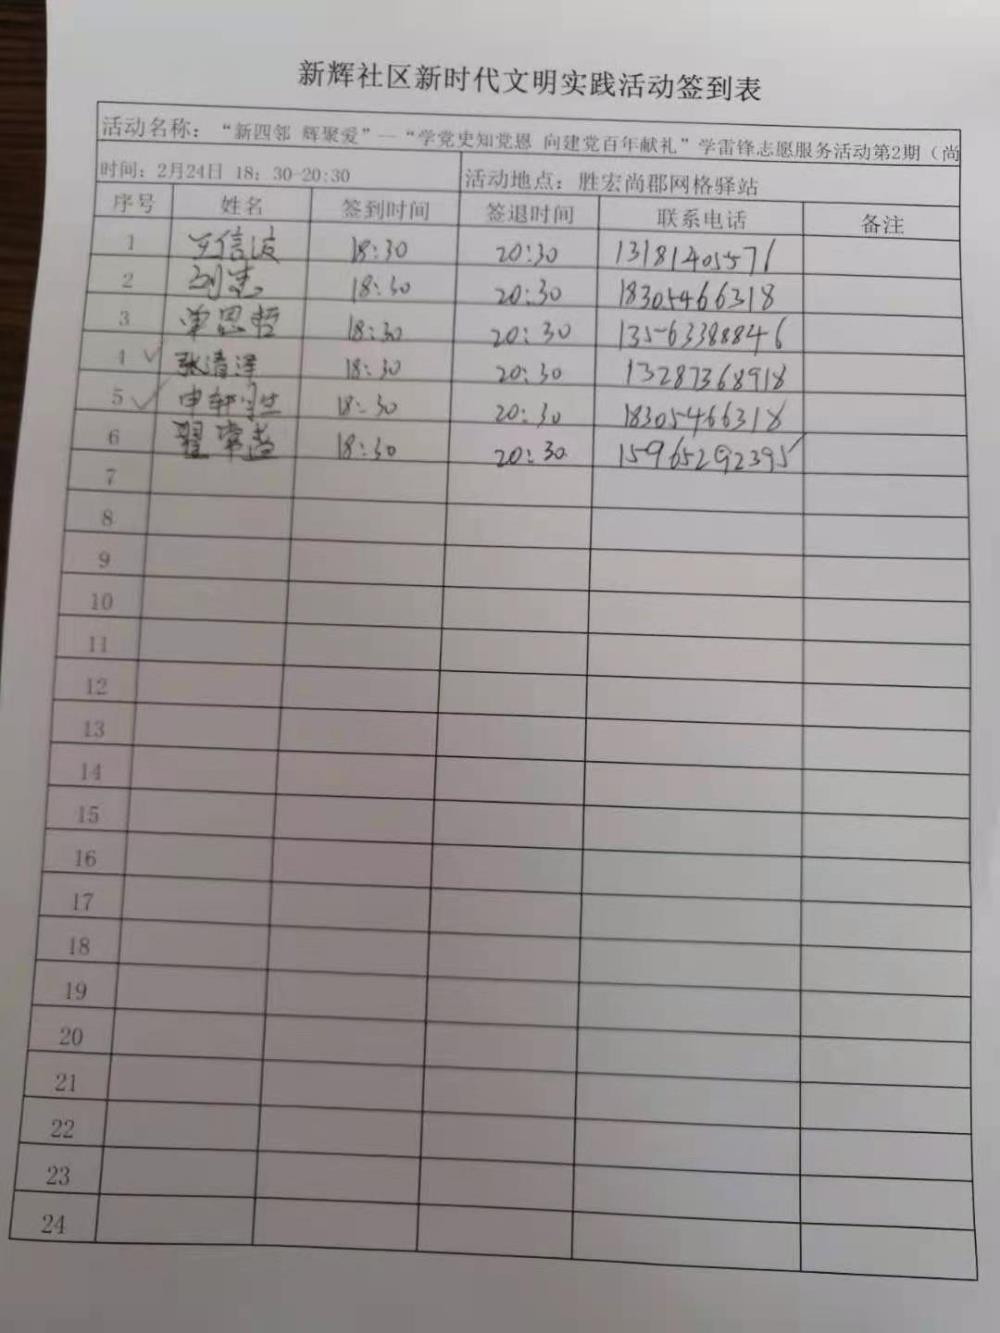 新辉社区新时代文明实践活动签到表
活动名称：“新四邻 辉聚爱”—“学党史知党恩 向建党百年献礼”学雷锋志愿服务活动第2期（尚
时间：2月24日 18：30-20:30 活动地点：胜宏尚郡网格驿站
序号 姓名 签到时间 签退时间 联系电话 备注
1 王信波 18:30 20:30 13181405576
2 刘 18:30 20:30 18305466318
3 单思哲 18:30 20:30 13563388846
4 ✓ 张清泽 18:30 20:30 13287368918
5 ✓ 申轩 18:30 20:30 18305466318
6 翟常益 18:30 20:30 15965292395
7
8
9
10
11
12
13
14
15
16
17
18
19
20
21
22
23
24